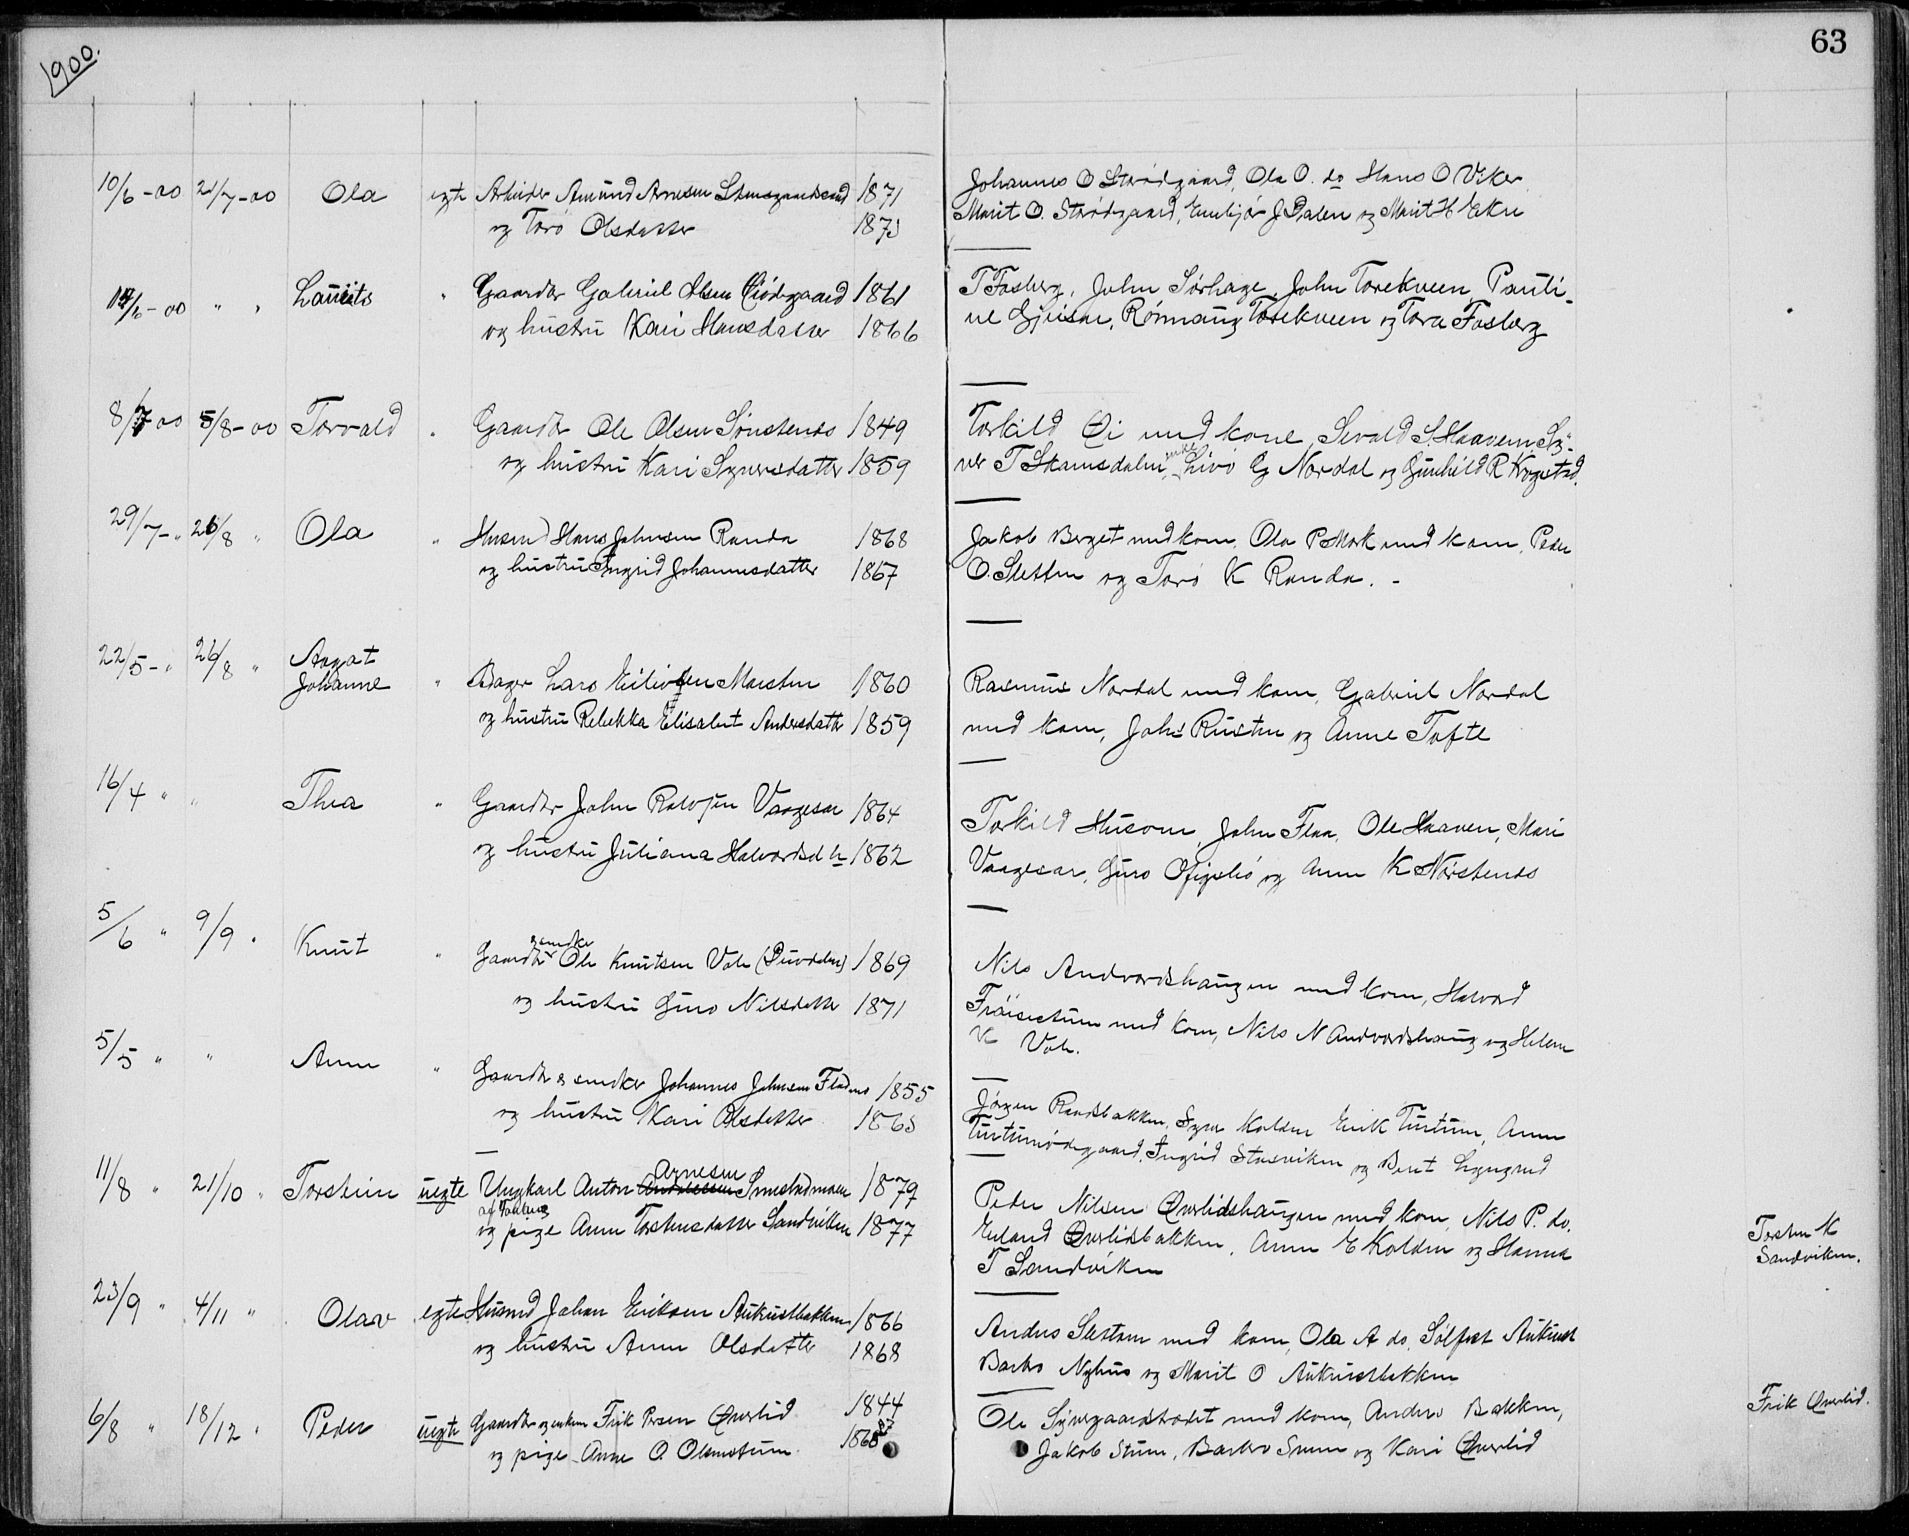 1900.
63
10/6 - 00 21/7 - 00 Ola egte Arbeider Amund Arnesen 1871
og Toro Olsdatter 1873
Johannes O Strødgaard, Ola O. do Hans O Viker
Marit O. Strødgaard, J Dalen og Marit H Ekre
/6 - 00 " " Laurits " Gaardbr Gabriel Olsen 1861
og hustru Kari Hansdatter 1866
T Fosberg, John Sørhage, John Torekveen Pauli-
ne Gjeisar, Rønnaug Torekveen og Tora Fosberg
8/7 00 5/8 - 00 Torvald " Gaardbr Ole Olsen Sønstenes 1849
og hustru Kari Syversdatter 1859
Torkild Øi med kone, Sevald S. Haaven Sy-
ver T Skamsdalen, enke Livo G Nordal og Gunhild R Krogstad.
29/7 - " 26/8 " Ola " Husm Hans Johnsen Randa 1868
og hustru Ingrid Johannesdatter 1867
Jakob Berget med kone, Ola P Mork med kone, Peder
O. Sletten og Toro K Randa. -
22/5 - " 26/8 " Aagat
Johanne " Bager Lars Marsten 1860
og hustru Rebekka Elisabet Andersdatter 1859
Rasmus Nordal med kone, Gabriel Nordal
med kone, Johs Rusten og Anne Tofte
16/4 " " Thea " Gaardbr John Rolvsen Vaagesar 1864
og hustru Juliana Halvordsdtr 1862
Torkild Husom, John Flaa, Ole Haaven, Mari
Vaagesar, Guro og Anne K Nørstenes
5/6 " 9/9 " Knut " Gaardbr & smeker Ole Knutsen Vole 1869
og hustru Guro Nilsdatter 1871
Nils Andvordshaugen med kone, Halvord
med kone, Nils N Andvordshaug og Helene
K Vole.
5/5 " " Anne " Gaardbr & snedker Johannes Johnsen 1855
og hustru Kari Olsdatter 1863
Jørgen Randsbakken, Syver Kolden Erik Turtum, Anne
Turtumødegaard, Ingrid Staaviken og Berit
11/8 " 21/10 " Torstein uegte Ungkarl Anton Arnesen 1879
og pige Anne Torstensdatter Sandviken 1877
Peder Nilsen Øverlidshaugen med kone, Nils P. do.
Erland Øverlidbakken, Anne E Kolden og Hanna
T Sandviken
Torsten K
Sandviken.
23/9 " 4/11 " Olav egte Husmd Johan Eriksen Aukrustbakken 1866
og hustru Anne Olsdatter 1868
Anders med kone, Ola A do. Sølfest Aukrust
Barbro Nyhus og Marit O Aukrustbakken
6/8 " 18/12 " Peder uegte Gaardbr og enkem Frik Persen Øverlid 1844
og pige Anne O. Olsmotum 1868
Ole med kone, Anders Bakken,
Jakob Stuen, Barbro og Kari Øverlid
Frik Øverlid.